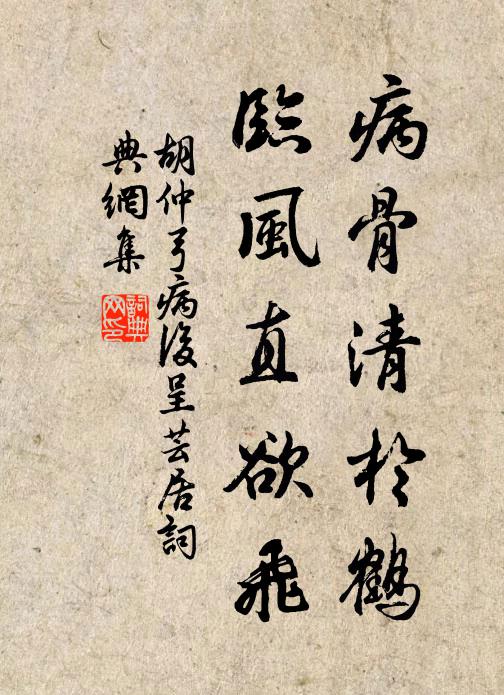 病骨清於鶴
臨風直欲飛
胡仲弓病後呈芸居詞
典網集
詞典網印